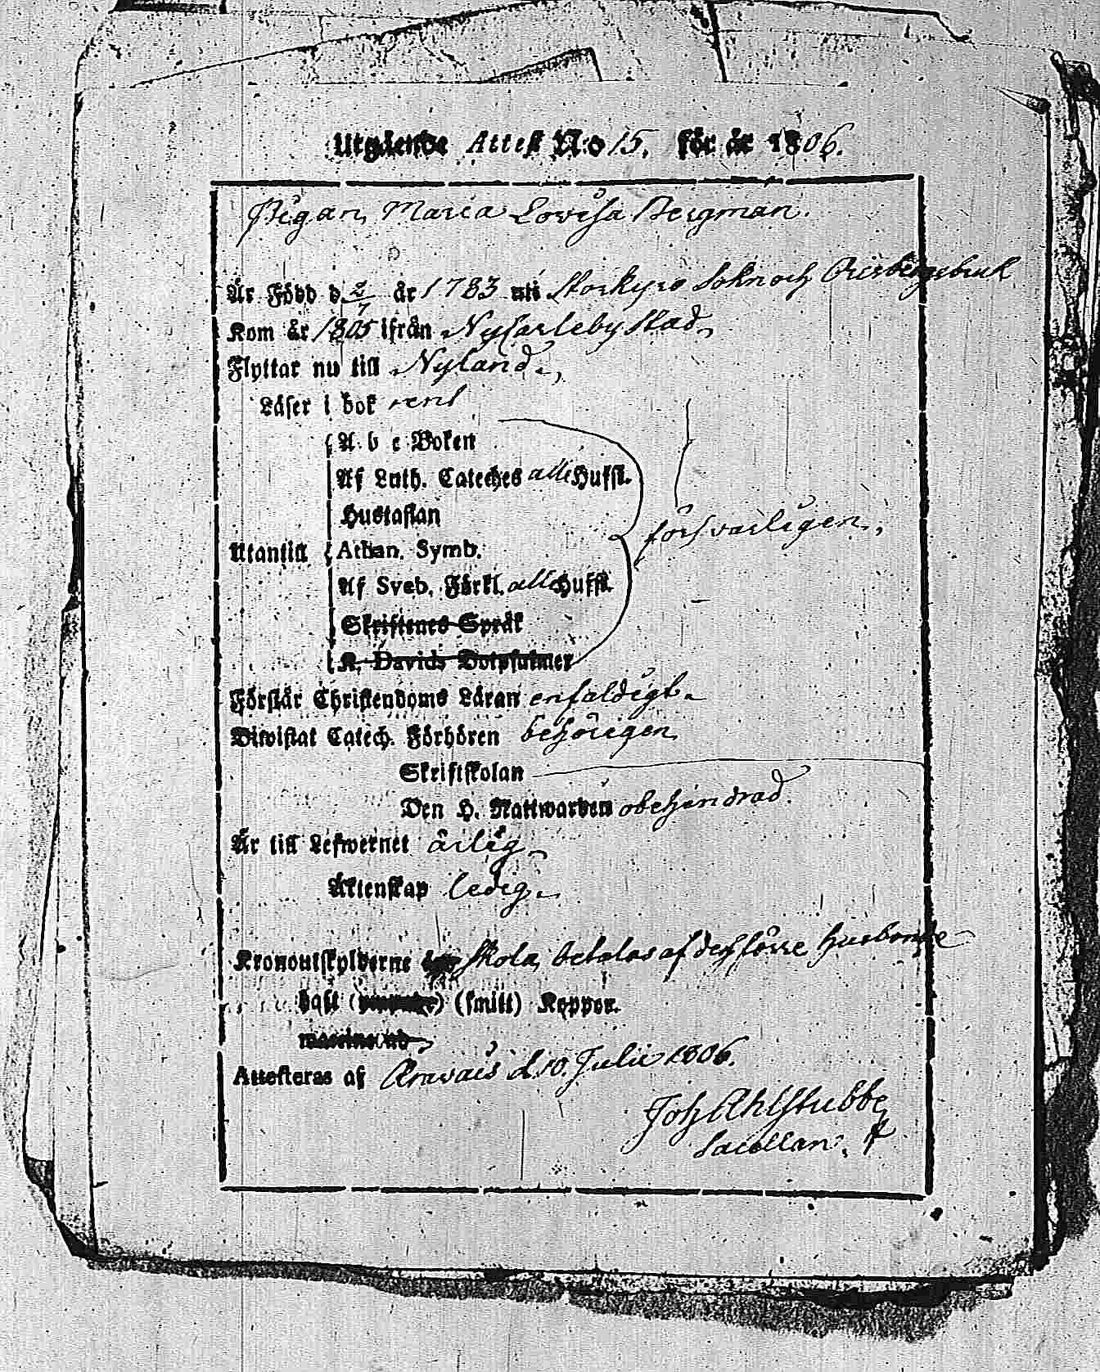 Utgående Attest No 15. för år 1806.
Pigan, Maria Lovisa Bergman.
Är Född d 2/7 år 1783 uti Storkyro Sokn och Orisbergsbruk
Kom år 1805 ifrån Nycarleby stad,
Flyttar nu till Nyland.,
Läser i bok rent
A b c Boken
Af Luth. Cateches alle Hufst.
Hustaflan
försvarligen.,
Utantill
Athan. Symb.
Af Sveb. Förkl. alle Hufst.
Skriftenes Språk
K. Davids Botpsalmer
Förstår Christendoms Läran enfaldigt.
Biwistat Catech. Förhören behörigen
Skriftskolan
Den H. Nattwarden obehindrad.
Är till Lefwernet ärlig
Äktenskap ledig.
Kronoutskylderne skola betalas af dess förre Husbonde
haft (smitt) Koppor.
Attesteras af Oravais d. 10. Julii 1806.
Joh Ahlstubbe
Sacellan.